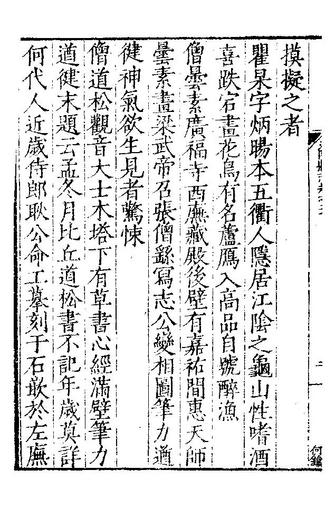 摸擬之者
瞿杲字炳暘本五衢人隱居江陰之龜山性嗜酒
喜跌宕畫花鳥有名蘆鴈入高品自號醉漁
僧曇素廣福寺西廡藏殿後壁有嘉祐間惠天師
曇素畫梁武帝召張僧繇寫志公變相圖筆力遒
健神氣欲生見者驚悚
僧道松觀音大士木塔下有草書心經滿壁筆力
遒健末題云孟冬月比丘道松書不記年歲莫詳
何代人近歲侍郎耿公命工摹刻于石嵌於左廡